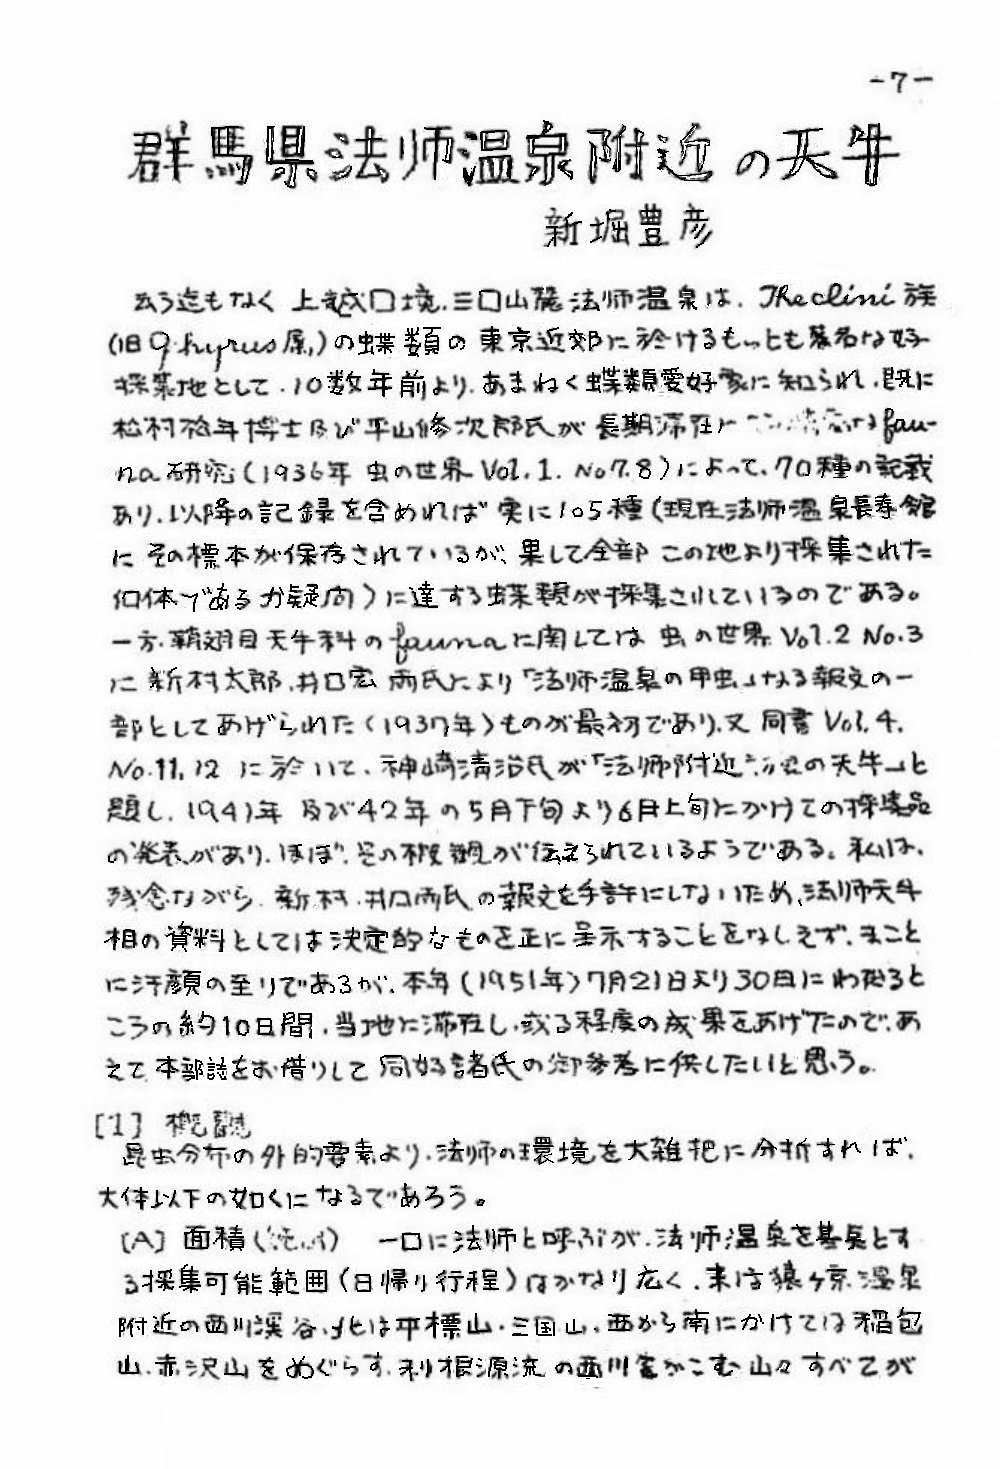 -7-
群馬県法师温泉附近の天牛
新堀豊彦
云う迄もなく上越口境、三口山麓法师温泉は、Theclini族
(旧Zephyrus属)の蝶類の東京近郊に於けるもっとも著名な好
採集地として、10数年前より、あまねく蝶類愛好家に知られ、既に
松村松年博士及び平山修次郎氏が長期滞在 fau-
na研究(1936年 虫の世界 Vol.1. No7.8)によって、70種の記載
あり、以降の記録を含めれば実に105種(現在法师温泉長寿館
にその標本が保存されているが、果して全部この地より採集された
個体であるか疑問)に達する蝶類が採集されているのである。
一方、鞘翅目天牛科のfaunaに関しては虫の世界 Vol.2 No.3
に新村太郎、井口宏両氏により「法师温泉の甲虫」なる報文の一
部としてあげられた(1937年)ものが最初であり、又同書 Vol.4.
No.11,12 に於いて、神崎清治氏が「法师附近 の天牛」と
題し、1941年及び42年の5月下旬より6月上旬にかけての採集品
の発表があり、ほぼ、その概観が伝えられているようである。私は、
残念ながら、新村、井口両氏の報文を手許にしないため、法师天牛
相の資料としては決定的なものを正に呈示することをなしえず、まこと
に汗顔の至りであるが、本年(1951年)7月21日より30日にわたると
ころの約10日間、当地に滞在し、或る程度の成果をあげたので、あ
えて、本部誌をお借りして同好諸氏の御参考に供したいと思う。
[1] 概説
昆虫分布の外的要素より、法师の環境を大雑把に分析すれば、
大体以下の如くになるであろう。
[A] 面積 一口に法师と呼ぶが、法师温泉を基点とす
る採集可能範囲(日帰り行程)はかなり広く、東は猿ヶ京温泉
附近の西川渓谷、北は平標山、三国山、西から南にかけては稲包
山、赤沢山をめぐらす、利根源流の西川をかこむ山々すべてが